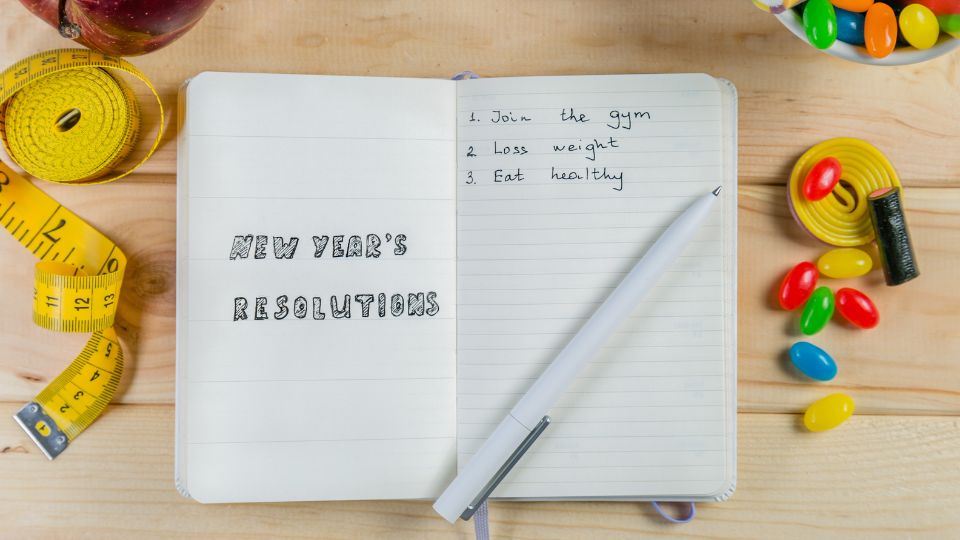 NEW YEAR'S
RESOLUTIONS
1. Join the gym
2. Loss weight
3. Eat healthy
2
11 12 13